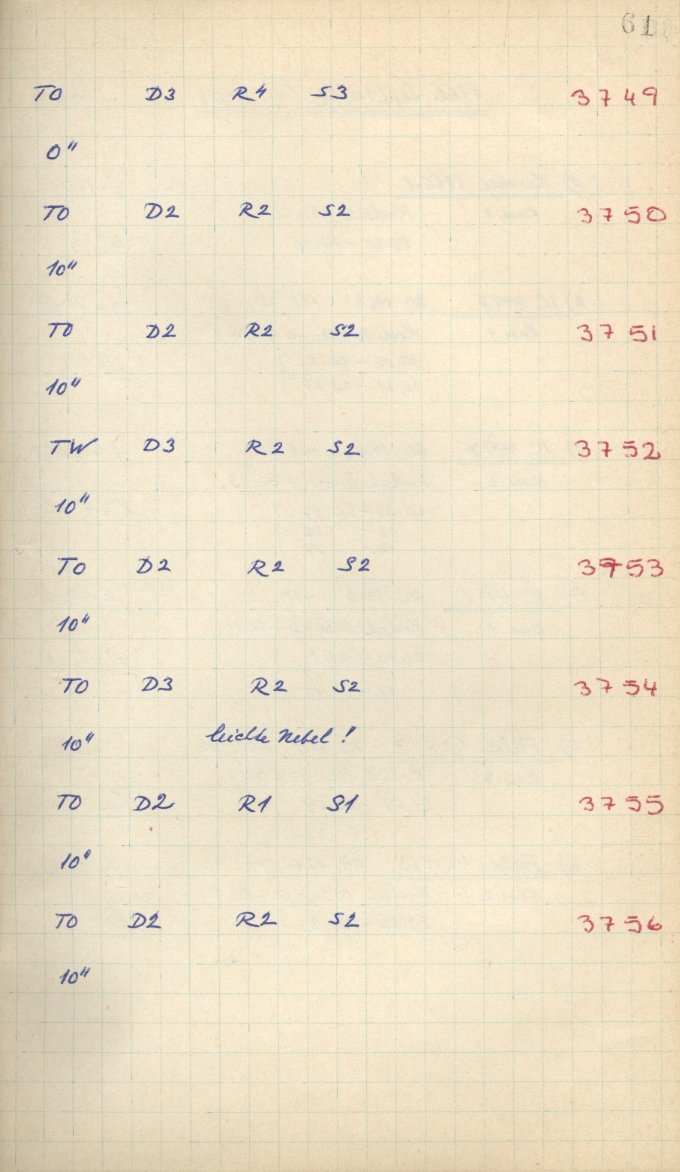 61
TO D3 R4 S3 3749
0"
TO D2 R2 S2 3750
10"
TO D2 R2 S2 3751
10"
TW D3 R2 S2 3752
10"
TO D2 R2 S2 3753
10"
TO D3 R2 S2 3754
10" leichte Nebel!
TO D2 R1 S1 3755
10"
TO D2 R2 S2 3756
10"